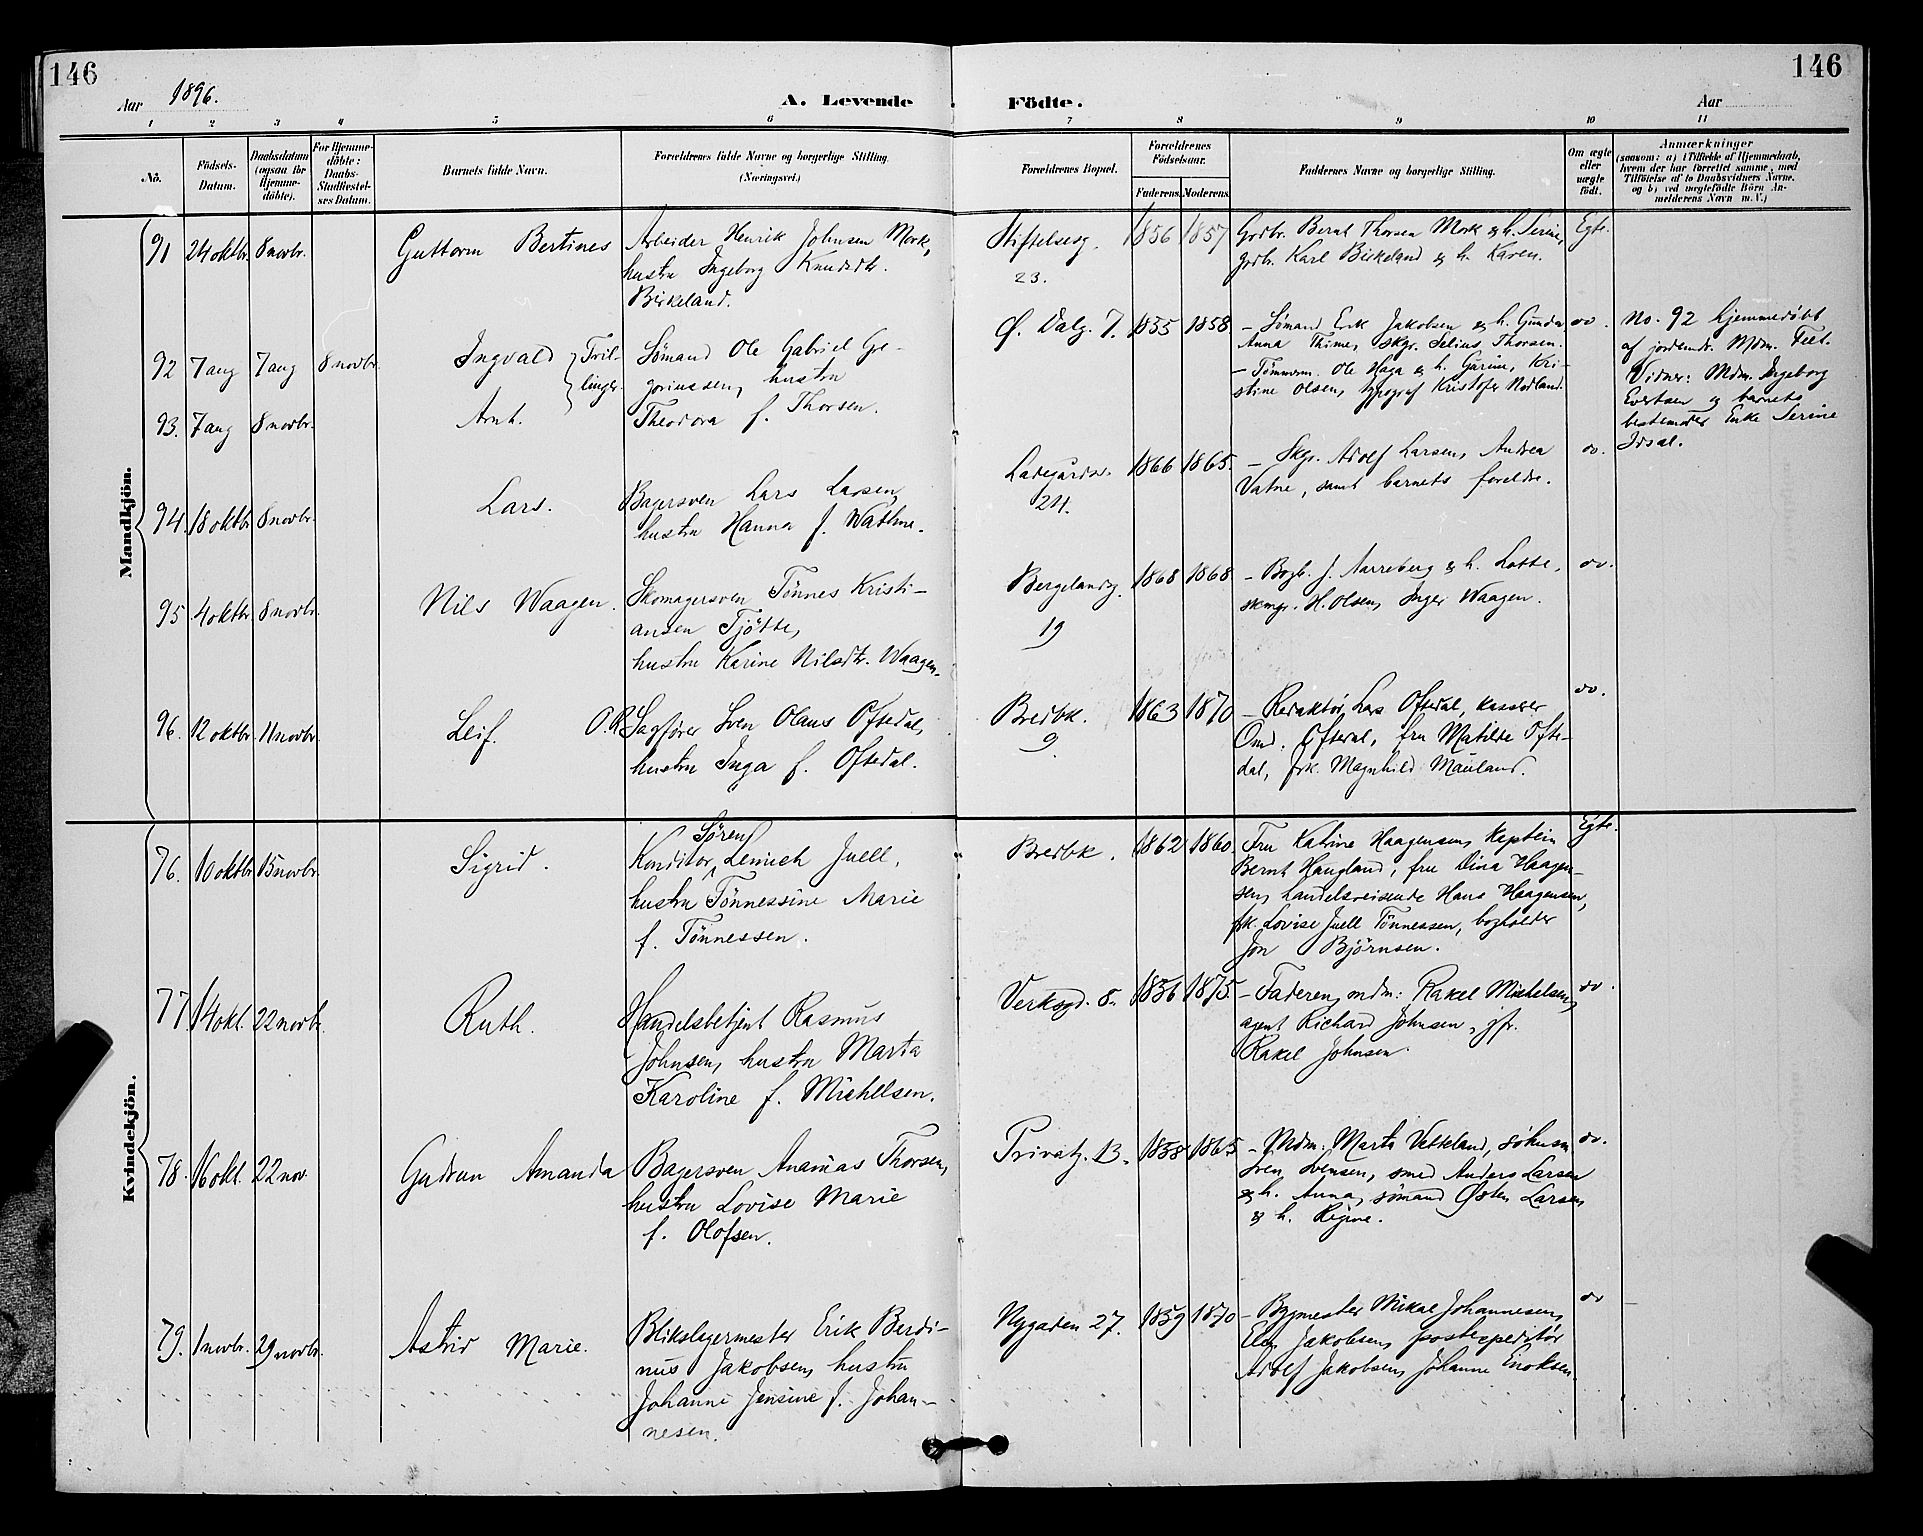 146
146
Aar 1896.
A. Levende
Födte.
Aar
1 2 3 4 5 6 7 8 9 10 11
No.
Födsels-
Datum.
Daabsdatum
(ogsaa for
Hjemme-
döbte).
For Hjemme-
döbte:
Daabs-
Stadfæstel-
ses Datum.
Barnets fulde Navn.
Forældrenes fulde Navne og borgerlige Stilling.
(Næringsvei.)
Forældrenes Bopæl.
Forældrenes
Födselsaar.
Faderens. Moderens.
Faddernes Navne og borgerlige Stilling.
Om ægte
eller
uægte
födt.
Anmærkninger
(saasom: a) i Tilfælde af Hjemmedaab,
hvem der har forrettet samme, med
Tilföielse af to Daabsvidners Navne,
og b) ved uægtefödte Börn An-
melderens Navn m. V.)
Mandkjön.
91 24 oktbr. 8 novbr. Guttorm Bertines
Arbeider Henrik Johnsen Mork,
hustru Ingeborg Knudsdtr.
Birkeland.
Stiftelsesg.
23.
1856 1857
Grdbr. Bernt Thorsen Mork & h. Serine,
grdbr. Karl Birkeland & h. Karen.
Egte.
92 7 aug 7 aug 8 novbr. Ingvald
Tvil-
linger.
Sømand Ole Gabriel Gre-
goriussen, hustru
Theodora f. Thorsen.
93. 7 aug 8 novbr. Arnt.
Ø. Valg. 7. 1855 1858
– Sømand Erik Jakobsen & h. Gunda
Anna Thime, skgr. Selius Thorsen.
– Tømmerm. Ole Haga & h. Gurine, Kri-
stine Olsen, typograf Kristofer Nedland.
do.
No. 92 hjemmedøbt
af jordemdr. Mdm. Feet.
Vidner: Mdm. Ingeborg
Evertsen & barnets
bestemoder Enke Serine
Idsal.
94. 18 oktbr. 8 novbr. Lars.
Bagersven Lars Larsen,
hustru Hanna f. Wathne.
Ladegårdsv.
24.
1866 1865.
– Skgr. Adolf Larsen, Andrea
Vatne, samt barnets foreldre.
do.
95 4 oktbr. 8 novbr. Nils Waagen.
Skomagersven Tönnes Kristi-
ansen Tjötte,
hustru Karine Nilsdtr. Waagen.
Bergelandsg.
19
1868 1868
– Bogb. J. Aarreberg & h. Lotte,
skmgr. H. Olsen, Inger Waagen.
do.
96. 12 oktbr. 11 novbr. Leif.
O.R. Sagfører Sven Olaus Oftedal,
hustru Inga f. Oftedal.
Bredbk.
9.
1863 1870
– Redaktør Lars Oftedal, kasserer
Omd. Oftedal, fru Matilde Ofte-
dal, frk. Magnhild Mauland.
do.
Kvindekjön.
76. 10 oktbr. 15 novbr. Sigrid.
Sören
Konditor, Lemich Juell,
hustru Tönnessine Marie
f. Tönnessen.
Bredbk. 1862 1860.
Fru Katrine Haagensen, kaptein
Bernt Haugland, fru Dina Haagen-
sen, handelsreisende Hans Haagensen,
frk. Lovise Juell Tönnessen, bogholder
Jon Björnsen.
Egte.
77. 14 okt. 22 novbr. Ruth.
Handelsbetjent Rasmus
Johnsen, hustru Marta
Karoline f. Michelsen.
Verksgd. 8. 1856 1875.
– Faderen, mdm: Rakel Michelsen,
agent Richard Johnsen, jfr.
Rakel Johnsen.
do.
78. 16 okt. 22 nov. Gudrun Amanda
Bagersven Ananias Thorsen,
hustru Lovise Marie
f. Olofsen.
Privatg. 13. 1858 1865
– Mdm: Marta Vetteland, søhusm.
Sven Svensen, smed Anders Larsen
& h. Anna, sømand Østen Larsen,
& h. Regine.
do.
79. 1 novbr. 29 novbr. Astrid Marie.
Blikslagermester Erik Berdi-
nus Jakobsen, hustru
Johanne Jensine f. Johan-
nesen.
Nygaden 27. 1859 1870
– Bygmester Mikal Johannesen,
Elen Jakobsen, postexpeditør
Adolf Jakobsen, Johanne Enoksen.
do